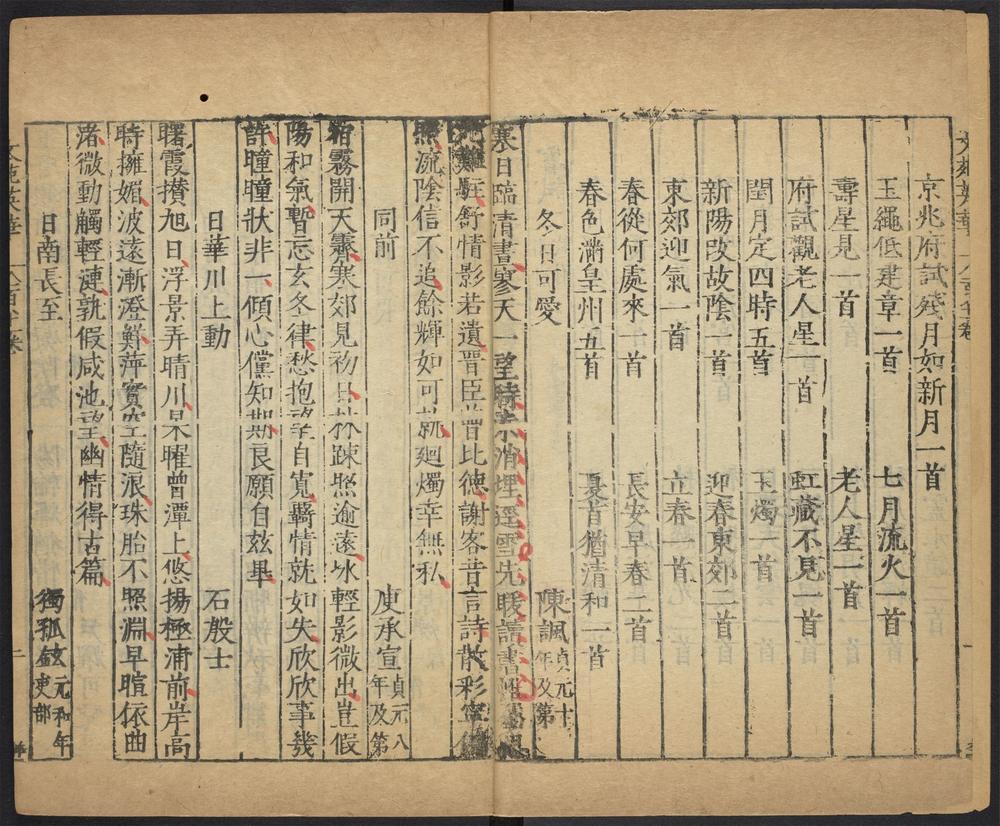 京兆府試殘月如新月一首
玉繩低建章一首 七月流火一首
壽星見一首 老人星一首
府試觀老人星一首 虹藏不見一首
閏月定四時五首 玉燭一首
新陽改故陰一首 迎春東郊二首
東郊迎氣一首 立春一首
春從何處來一首 長安早春二首
春色滿皇州五首 夏首猶清和一首
冬日可愛 陳諷 貞元十年及第
寒日臨清晝寥天一望時未消埋逕雪先暖讀書
難駐舒情影若遺晉臣曾比德謝客昔言詩散彩寧
照流陰信不追餘輝如可就廻燭幸無私
同前 庾承宣 貞元八年及第
宿霧開天霽寒郊見初日林疎照逾遠冰輕影微出豈假
陽和氣暫忘玄冬律愁抱望自寬羇情就如失欣欣事幾
許曈曈狀非一傾心儻知期良願自兹畢
日華川上動 石殷士
曙霞攅旭日浮景弄晴川杲曜曾潭上悠揚極浦前岸高
時擁媚波遠漸澄鮮萍實空隨浪珠胎不照淵早暄依曲
渚微動觸輕漣孰假咸池望幽情得古篇
日南長至 獨孤鉉 元和年吏部